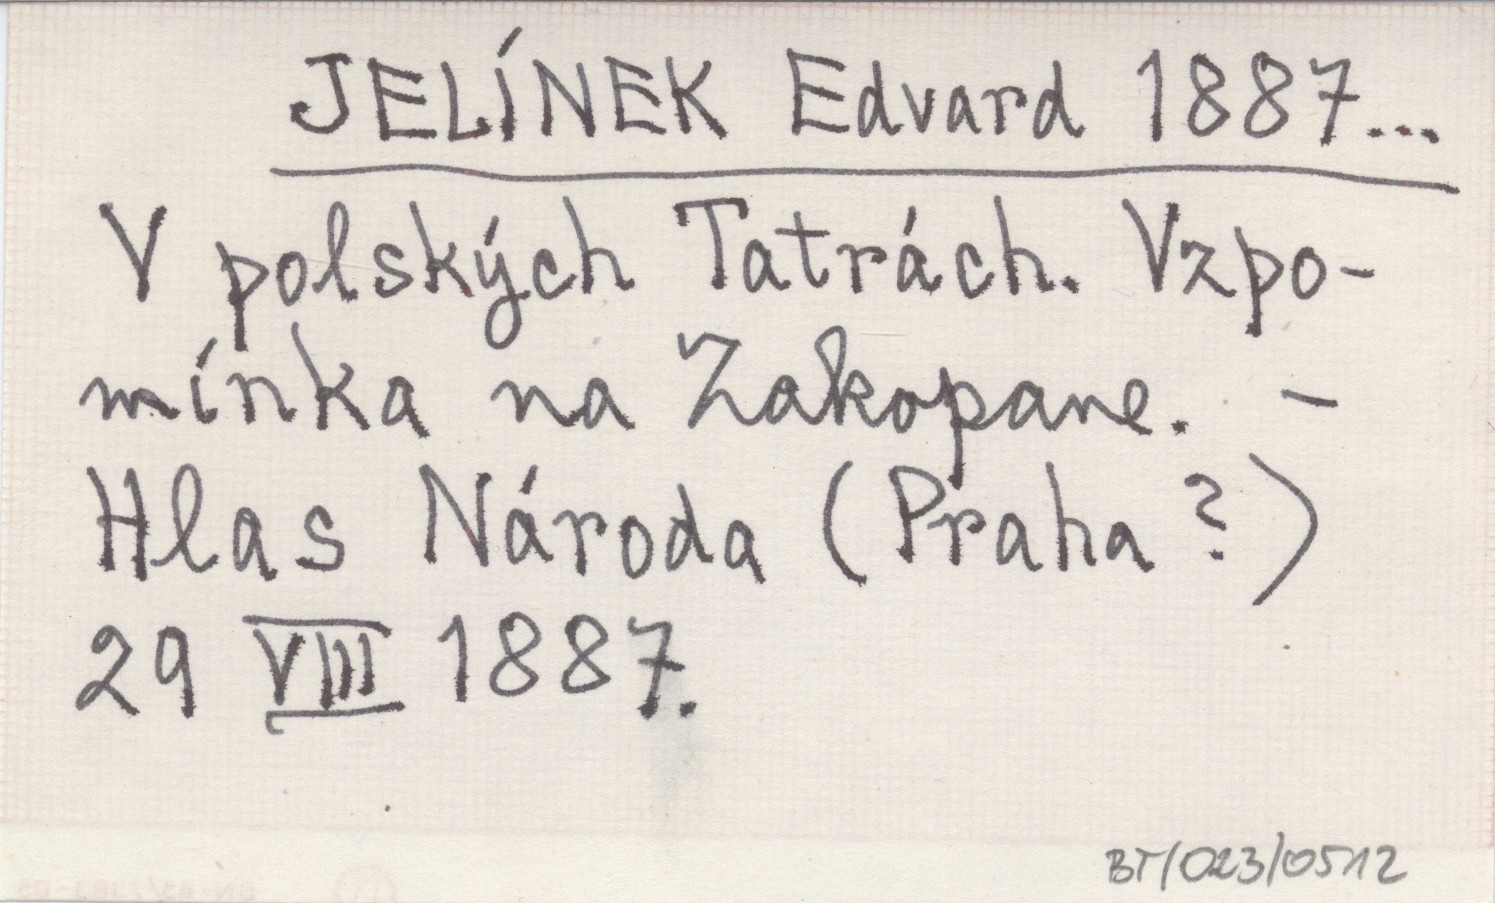 JELÍNEK Edvard 1887...
V polských Tatrách. Vzpo-
mínka na Zakopane. -
Hlas Národa (Praha ?)
29 VIII 1887.
BT/023/0512